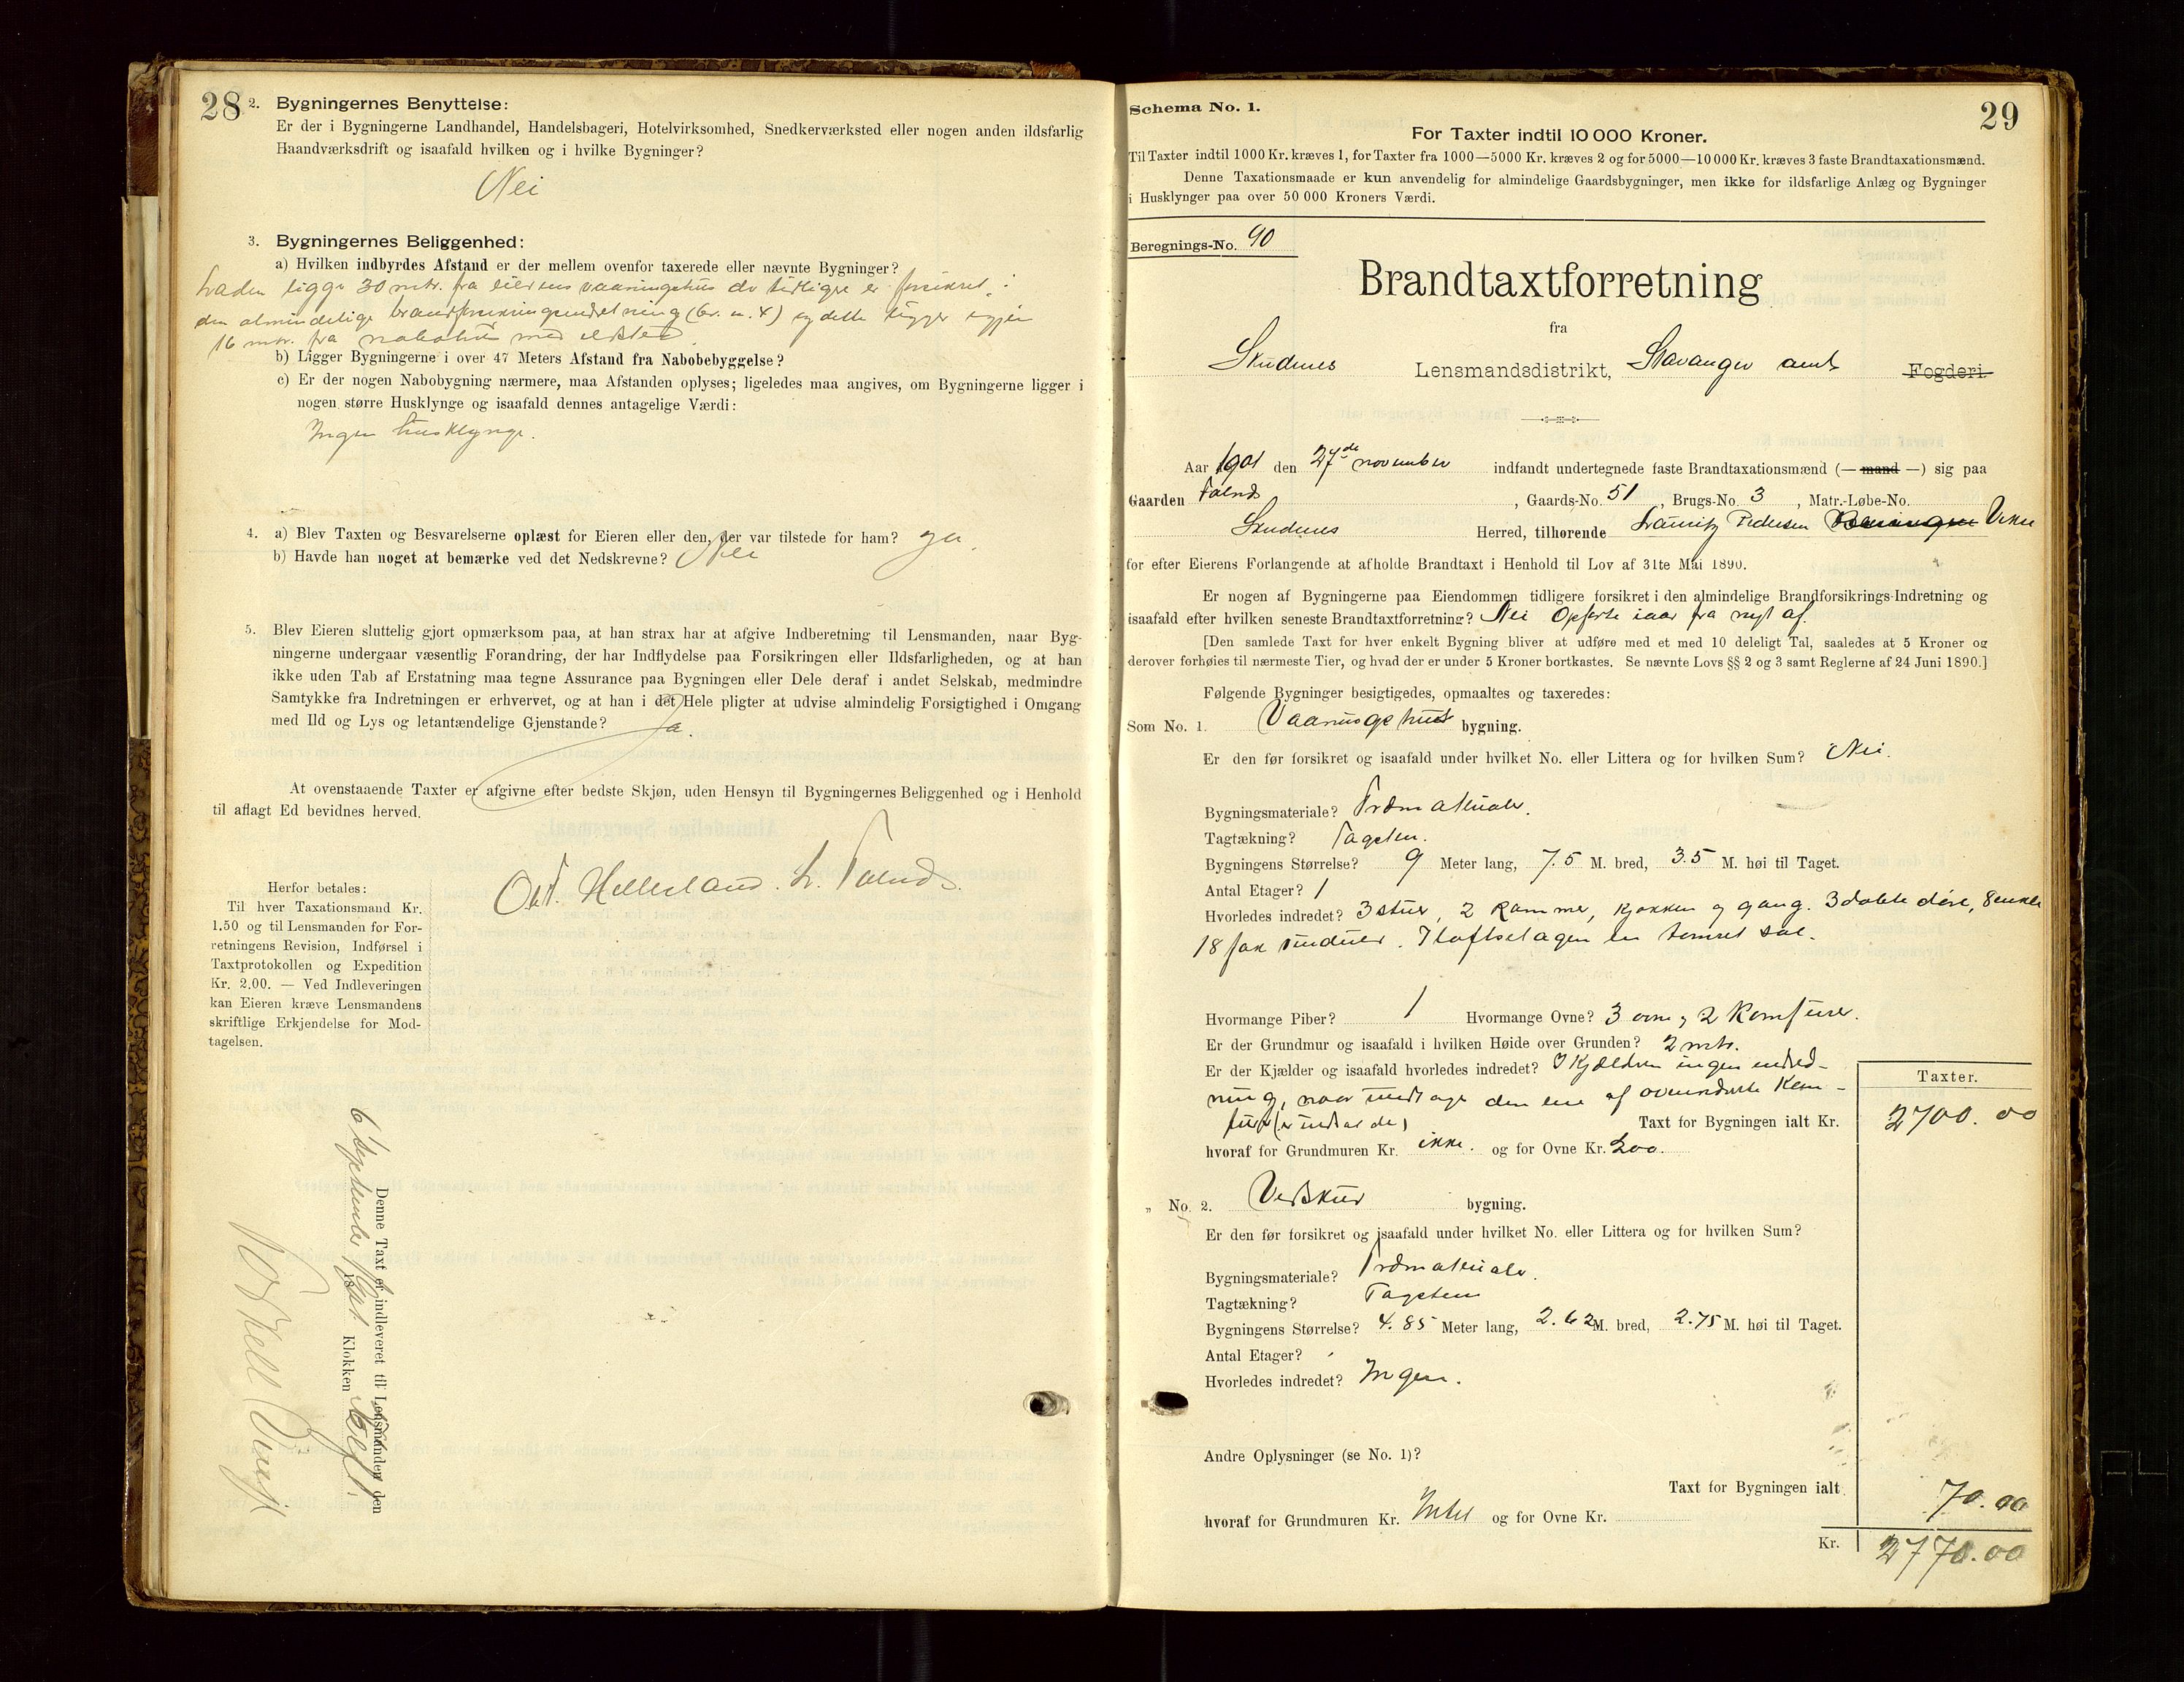 28
2. Bygningernes Benyttelse:
Er der i Bygningerne Landhandel, Handelsbageri, Hotelvirksomhed, Snedkerværksted eller nogen anden ildsfarlig
Haandværksdrift og isaafald hvilken og i hvilke Bygninger?
Nei
3. Bygningernes Beliggenhed:
a) Hvilken indbyrdes Afstand er der mellem ovenfor taxerede eller nævnte Bygninger?
Laden ligger 30 mtr. fra eierens vaaningshus der tidligere er forsikret i
den almindelige brandforsikringsindretning (br. n. 4) og dette ligger igjen
16 mtr. fra nabohus med ildsted.
b) Ligger Bygningerne i over 47 Meters Afstand fra Nabobebyggelse?
c) Er der nogen Nabobygning nærmere, maa Afstanden oplyses; ligeledes maa angives, om Bygningerne ligger i
nogen større Husklynge og isaafald dennes antagelige Værdi:
Ingen husklynge.
4. a) Blev Taxten og Besvarelserne oplæst for Eieren eller den, der var tilstede for ham? Ja.
b) Havde han noget at bemærke ved det Nedskrevne? Nei
5. Blev Eieren sluttelig gjort opmærksom paa, at han strax har at afgive Indberetning til Lensmanden, naar Byg-
ningerne undergaar væsentlig Forandring, der har Indflydelse paa Forsikringen eller Ildsfarligheden, og at han
ikke uden Tab af Erstatning maa tegne Assurance paa Bygningen eller Dele deraf i andet Selskab, medmindre
Samtykke fra Indretningen er erhvervet, og at han i det Hele pligter at udvise almindelig Forsigtighed i Omgang
med Ild og Lys og letantændelige Gjenstande? Ja.
At ovenstaaende Taxter er afgivne efter bedste Skjøn, uden Hensyn til Bygningernes Beliggenhed og i Henhold
til aflagt Ed bevidnes herved.
Hetlesland. L. Falnes.
Herfor betales:
Til hver Taxationsmand Kr.
1.50 og til Lensmanden for For-
retningens Revision, Indførsel i
Taxtprotokollen og Expedition
Kr. 2.00. — Ved Indleveringen
kan Eieren kræve Lensmandens
skriftlige Erkjendelse for Mod-
tagelsen.
Denne Taxt er indleveret til Lensmanden den
6 September 1901 Klokken
29
Schema No. 1.
For Taxter indtil 10 000 Kroner.
Til Taxter indtil 1000 Kr. kræves 1, for Taxter fra 1000—5000 Kr. kræves 2 og for 5000—10 000 Kr. kræves 3 faste Brandtaxationsmænd.
Denne Taxationsmaade er kun anvendelig for almindelige Gaardsbygninger, men ikke for ildsfarlige Anlæg og Bygninger
i Husklynger paa over 50 000 Kroners Værdi.
Beregnings-No. 90
Brandtaxtforretning
fra
Skudenes Lensmandsdistrikt, Stavanger amt Fogderi
Aar 1901 den 27de november indfandt undertegnede faste Brandtaxationsmænd (— mand —) sig paa
Gaarden Falnes, Gaards-No. 51, Brugs-No. 3, Matr.-Løbe-No.
Skudenes Herred, tilhørende Lauritz Pedersen
for efter Eierens Forlangende at afholde Brandtaxt i Henhold til Lov af 31te Mai 1890.
Er nogen af Bygningerne paa Eiendommen tidligere forsikret i den almindelige Brandforsikrings-Indretning og
isaafald efter hvilken seneste Brandtaxtforretning? Nei Opførte iaar fra nyt af.
[Den samlede Taxt for hver enkelt Bygning bliver at udføre med et med 10 deleligt Tal, saaledes at 5 Kroner og
derover forhøies til nærmeste Tier, og hvad der er under 5 Kroner bortkastes. Se nævnte Lovs §§ 2 og 3 samt Reglerne af 24 Juni 1890.]
Følgende Bygninger besigtigedes, opmaaltes og taxeredes:
Som No. 1. Vaaningshus bygning.
Er den før forsikret og isaafald under hvilket No. eller Littera og for hvilken Sum? Nei.
Bygningsmateriale? Træmaterialer.
Tagtækning? Tagsten.
Bygningens Størrelse? 9 Meter lang, 7.5 M. bred, 3.5 M. høi til Taget.
Antal Etager? 1
Hvorledes indredet? 3 stuer, 2 kammer, kjøkken og gang. 3 doble døre, 8 enkle
18 fag vinduer. I loftsetagen en tømret sal.
Hvormange Piber? 1 Hvormange Ovne? 3 ovne, 2 Komfurer.
Er der Grundmur og isaafald i hvilken Høide over Grunden? 2 mtr.
Er der Kjælder og isaafald hvorledes indredet? I Kjælderen ingen indred-
ning, naar undtages den ene af ovennævnte Kom-
furer
Taxter.
Taxt for Bygningen ialt Kr. 2700.00
hvoraf for Grundmuren Kr. ikke. og for Ovne Kr. 200.
" No. 2. Vedskur bygning.
Er den før forsikret og isaafald under hvilket No. eller Littera og for hvilken Sum?
Bygningsmateriale? Træmaterialer.
Tagtækning? Tagsten
Bygningens Størrelse? 4.85 Meter lang, 2.62 M. bred, 2.75 M. høi til Taget.
Antal Etager?
Hvorledes indredet? Ingen.
Andre Oplysninger (se No. 1)?
Taxt for Bygningen ialt 70.00
hvoraf for Grundmuren Kr. Intet og for Ovne Kr.
Kr. 2770.00